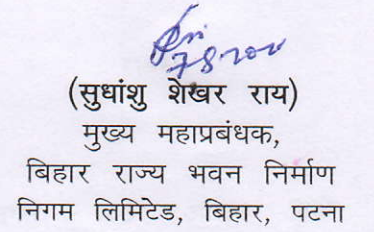 (सुधांशु शेखर राय)
मुख्य महाप्रबंधक,
बिहार राज्य भवन निर्माण
निगम लिमिटेड, बिहार, पटना